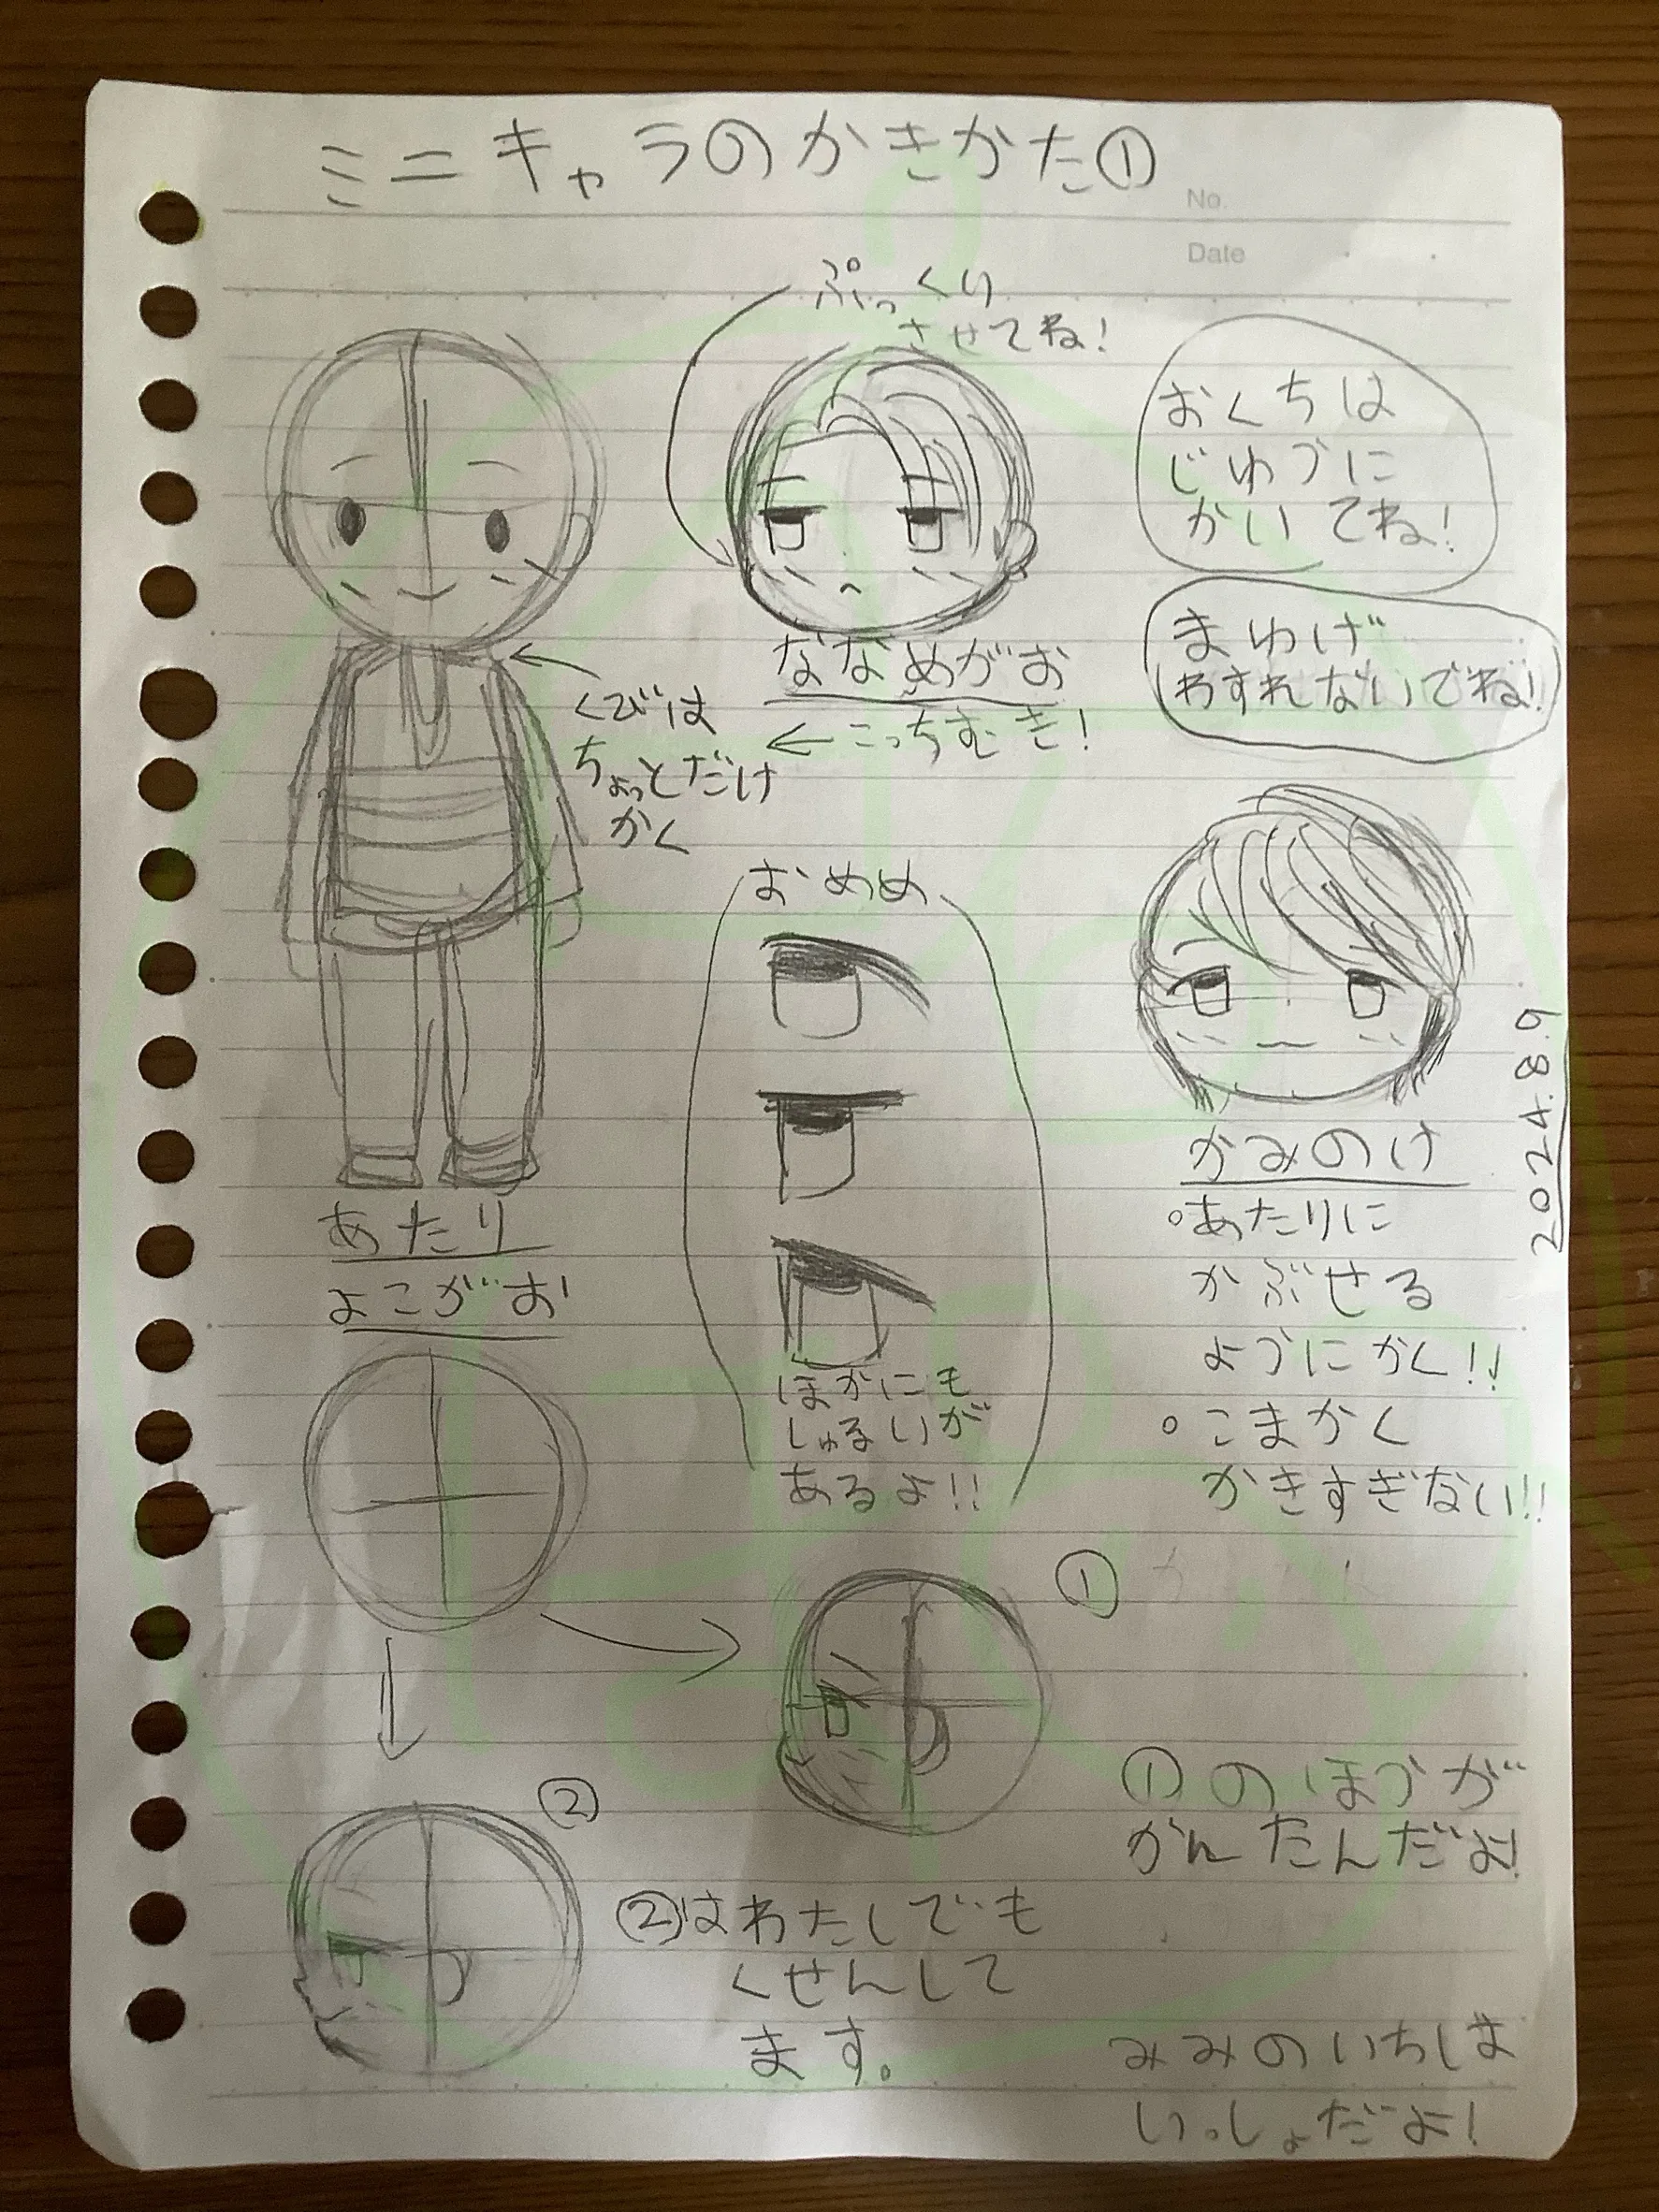 ミニキャラのかきかた①
No.
Date
ぷっくり
させてね!
おくちは
じゆうに
かいてね!
まゆげ
わすれないでね!
ななめがお
←こっちむき!
くびは
ちょっとだけ
かく
おめめ
ほかにも
しゅるいが
あるよ!!
かみのけ
○あたりに
かぶせる
ようにかく!!
○こまかく
かきすぎない!!
2024.8.9
あたり
よこがお
①
①のほうが
かんたんだよ!
②
②はわたしでも
くせんして
ます。
みみのいちは
いっしょだよ!